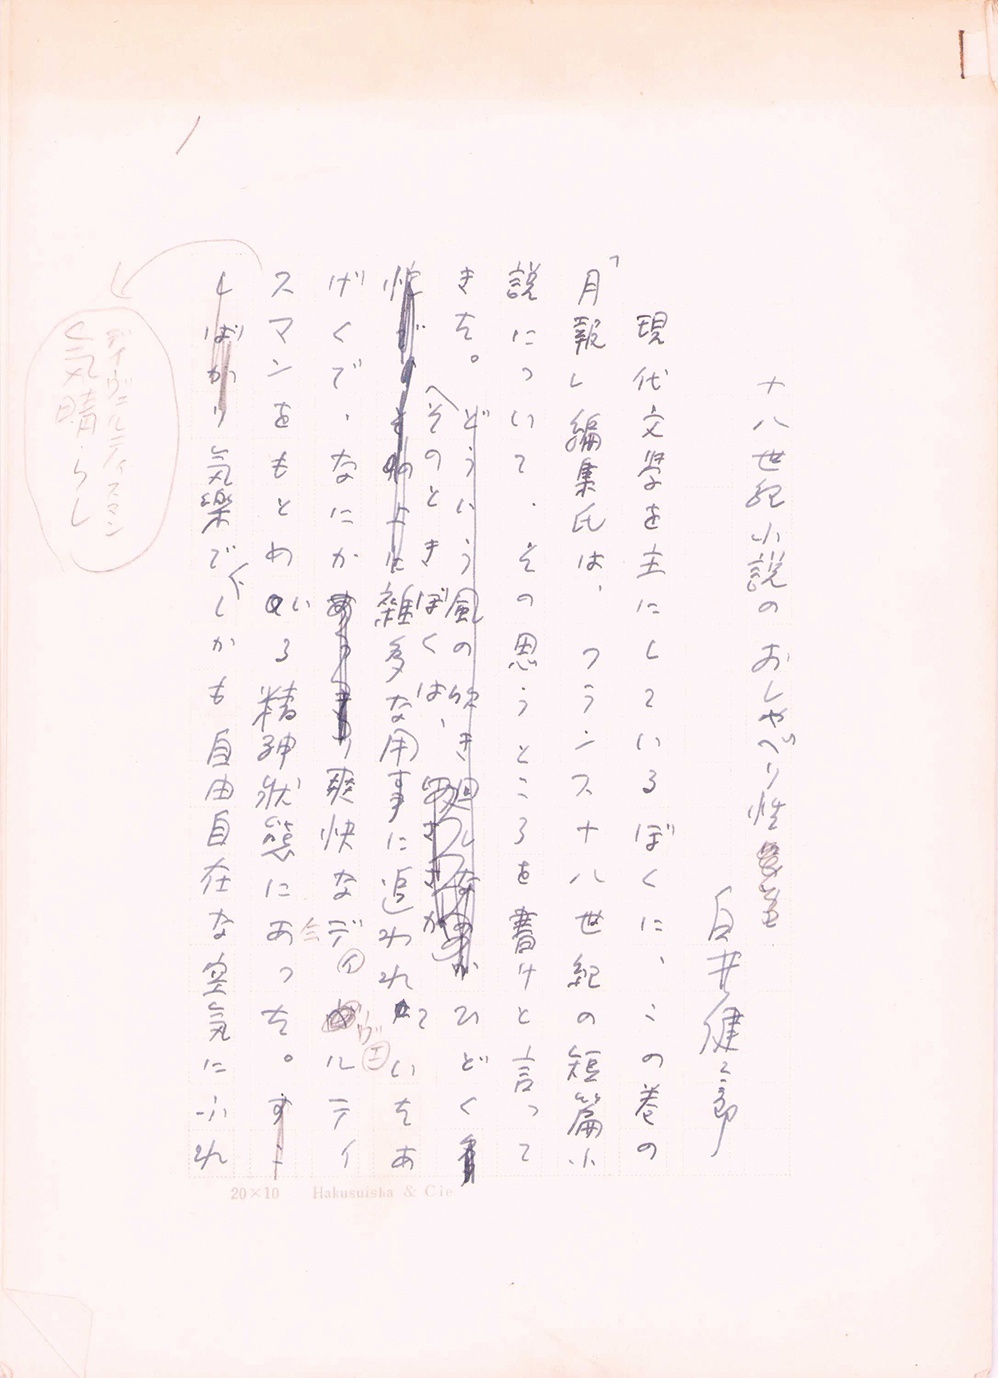 十八世紀小説のおしゃべり性
白井健三郎
現代文学を主にしているぼくに、この巻の
「月報」編集氏は、フランス十八世紀の短篇小
説について、その思うところを書けと言って
きた。どういう風の吹き廻しなのかひどく
そのときぼくは、
雑多な用事に追われていたあ
げくで、なにか爽快なディヴェルティ
スマンをもとめいる精神状態にあった。すこ
しばかり気楽で、しかも自由自在な空気にふれ
ディヴェルティスマン
気晴らし
20×10 Hakusuisha & Cie